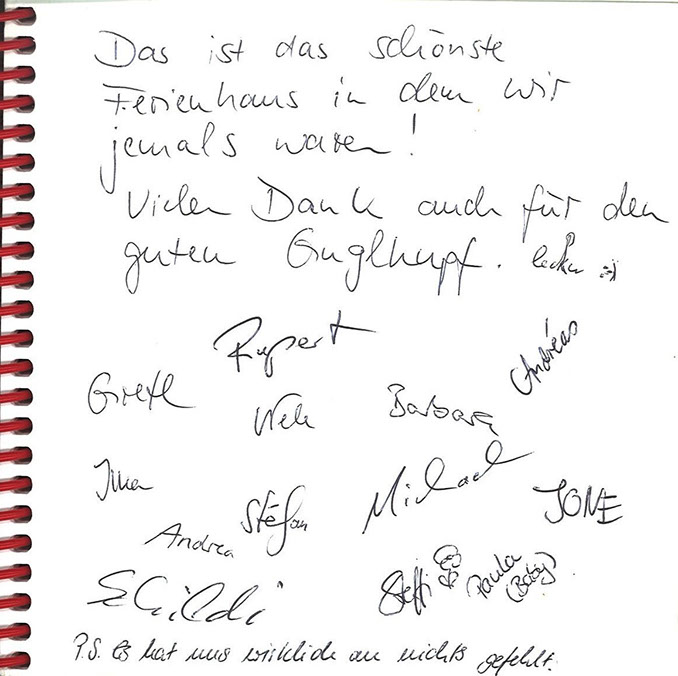 Das ist das schönste
Ferienhaus in dem wir
jemals waren!
Vielen Dank auch für den
guten Guglhupf. lecker :-)
Rupert
Andreas
Gretl
Barbara
Michael
Stefan
JONE
Andrea
Steffi
Paula
(Baby)
P.S. Es hat uns wirklich an nichts gefehlt.